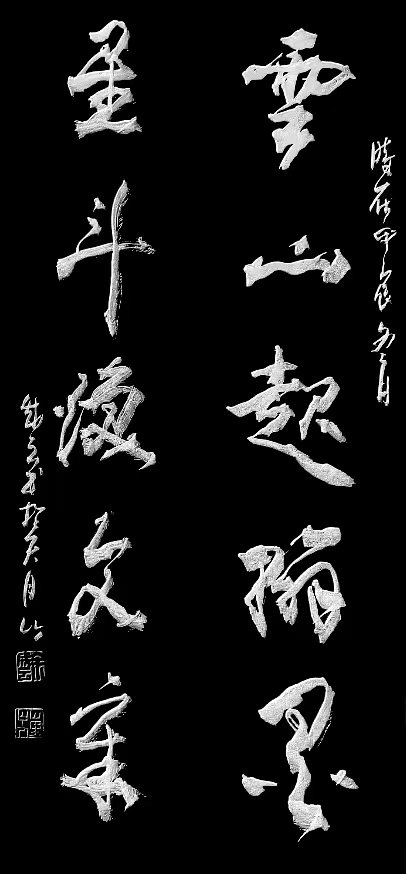 時在甲辰冬月
雲山起翰墨
星斗煥文章